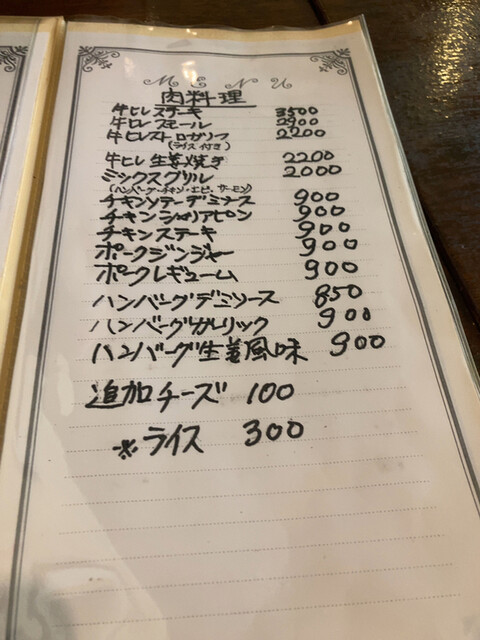 MENU
肉料理
牛ヒレステーキ 3500
牛ヒレスモール 2900
牛ヒレストロガノフ 2200
(ライス付き)
牛ヒレ生姜焼き 2200
ミックスグリル 2000
(ハンバーグ・チキン・エビ・サーモン)
チキンソテーデミソース 900
チキンシャリアピン 900
チキンステーキ 900
ポークジンジャー 900
ポークレギューム 900
ハンバーグデミソース 850
ハンバーグガーリック 900
ハンバーグ生姜風味 900
追加チーズ 100
※ライス 300